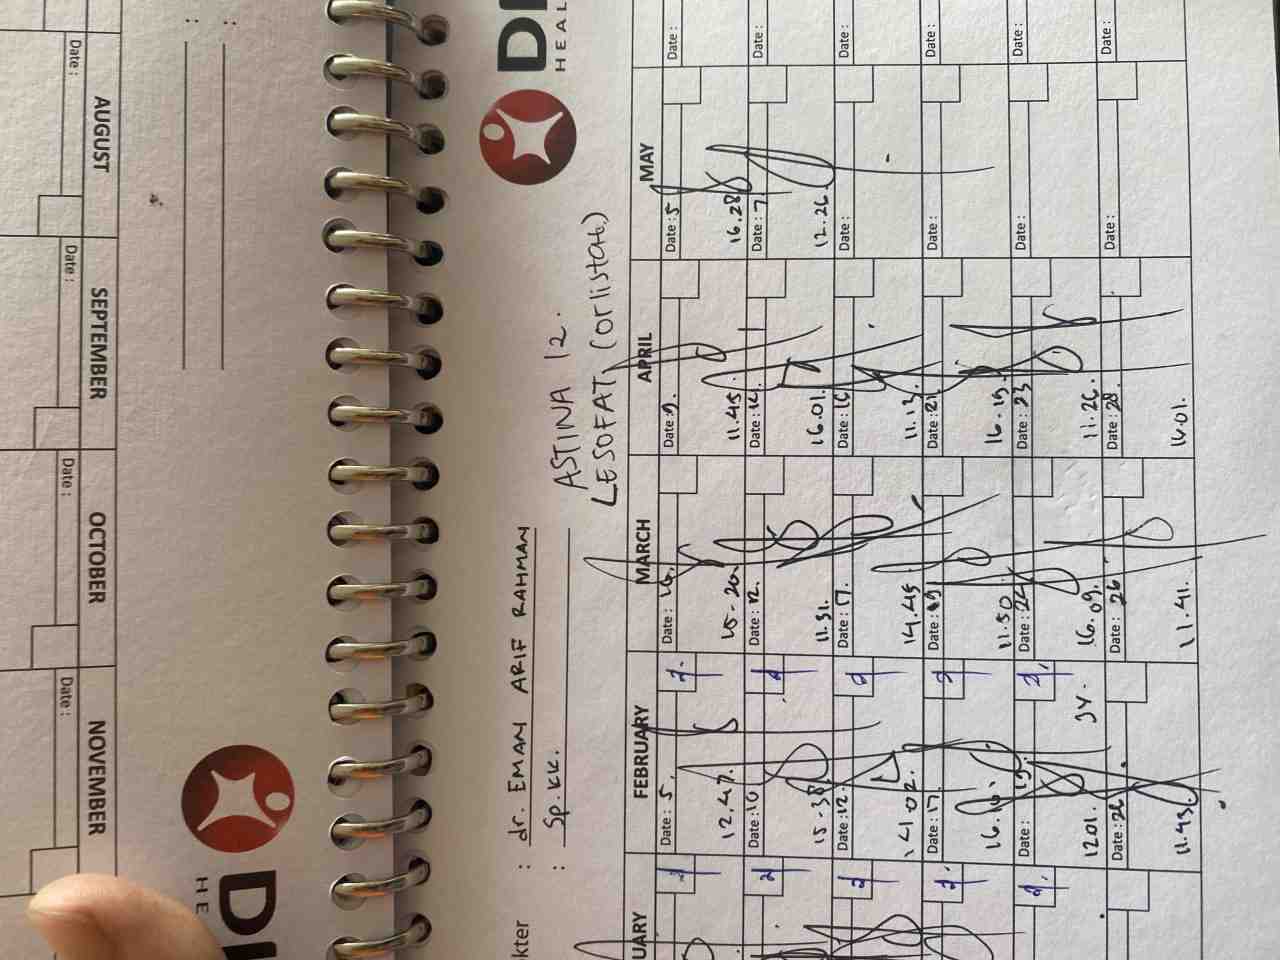 AUGUST
Date :
SEPTEMBER
Date :
OCTOBER
Date :
NOVEMBER
Date :
HEAL
ASTINA 12.
LESOFAT (orlistat)
kter : dr. EMAN ARIF RAHMAN
: Sp.KK.
UARY FEBRUARY MARCH APRIL MAY
Date : 5 Date : Date : 9. Date : 5 Date :
12.47. 15-20. 11.45. 16.28
Date : 10 Date : 12. Date : 14. Date : 7 Date :
15-38. 11.31. 16.01. 12.26
Date : 12. Date : 17. Date : 16 Date : Date :
14.02. 14.45 11.13.
Date : 17. Date : 19 Date : 21. Date : Date :
16.16. 11.50 16.19.
Date : 19. Date : 24 Date : 23 Date : Date :
12.01. 16.09. 11.26.
Date : 26 Date : 26 Date : 28. Date : Date :
11.43. 11.41. 16.01.